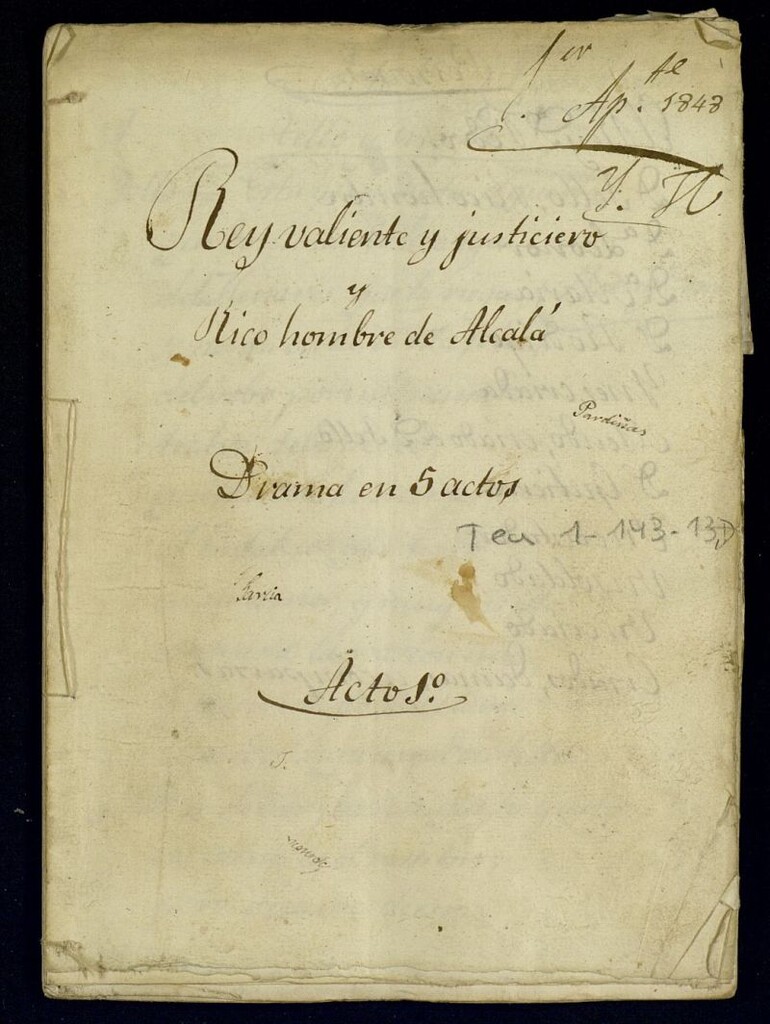 1.er Ap.te 1848
Rey valiente y justiciero
y
Rico hombre de Alcalá
Pardiñas
Drama en 5 actos
Tea 1-143-13, D
Garcia
Acto 1.º
J.